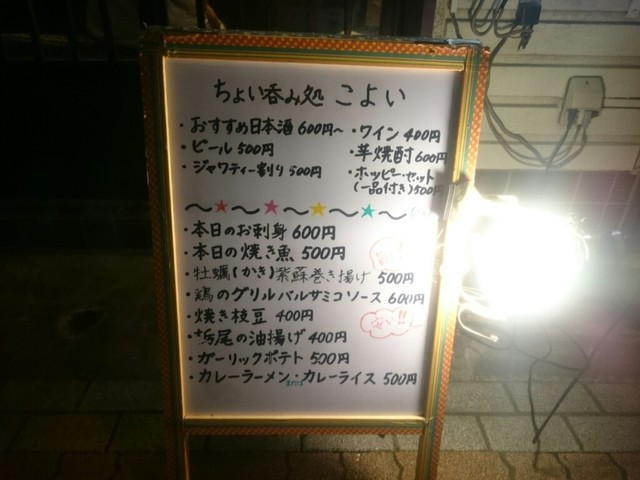 ちょい呑み処 こよい
・おすすめ日本酒 600円〜
・ビール 500円
・ジャワティー割り 500円
・ワイン 400円
・芋焼酎 600円
・ホッピーセット
(一品付き) 500円
・本日のお刺身 600円
・本日の焼き魚 500円
・牡蠣(かき)紫蘇巻き揚げ 500円
・鶏のグリルバルサミコソース 600円
・焼き枝豆 400円
・栃尾の油揚げ 400円
・ガーリックポテト 500円
・カレーラーメン・カレーライス 500円
または